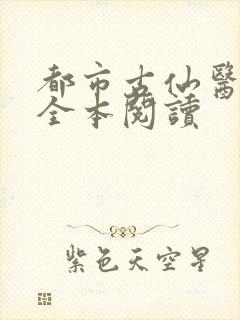 都市古仙醫
全本閱讀
紫色天空星